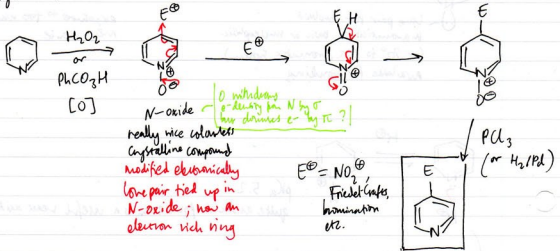 E⊕
E H
E
H₂O₂
or
PhCO₃H
[O]
E⊕
N
N⊕
O⊖
N⊕
O
N⊕
O⊖
N-oxide
really nice colourless
crystalline compound
modified electronically
lone pair tied up in
N-oxide; now an
electron rich ring
O withdraws
e-density from N by σ
but donates e- by π ?
E⊕ = NO₂⊕,
Friedel Crafts,
bromination
etc.
PCl₃
(or H₂/Pd)
E
N